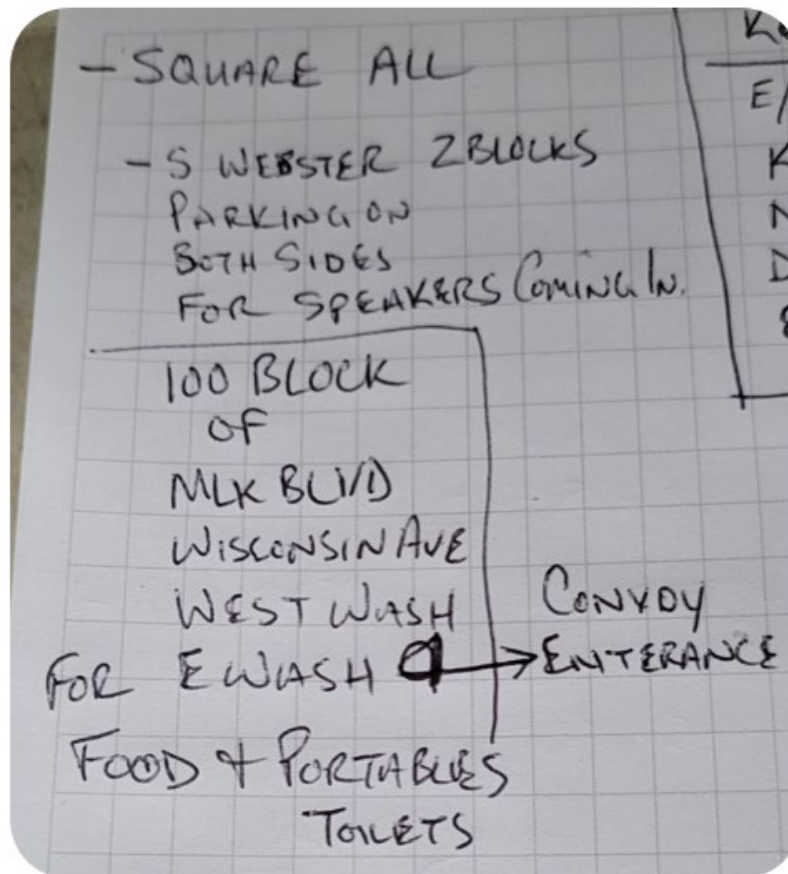 - SQUARE ALL
- S WEBSTER 2 BLOCKS
PARKING ON
BOTH SIDES
FOR SPEAKERS COMING IN.
100 BLOCK
OF
MLK BLVD
WISCONSIN AVE
WEST WASH
FOR E WASH → CONVOY
ENTERANCE
FOOD + PORTABLES
TOILETS
E/
K
N
D